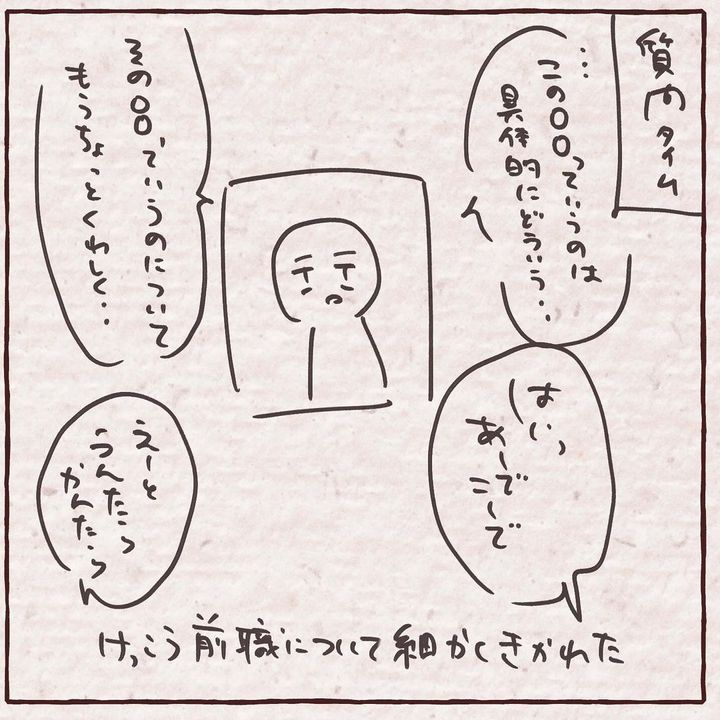 質問タイム
…この〇〇っていうのは
具体的にどういう‥
はいっ
あーで
こーで
その〇〇ていうのについて
もうちょっとくわしく‥
えーと
うんたら
かんたら
けっこう前職について細かくきかれた